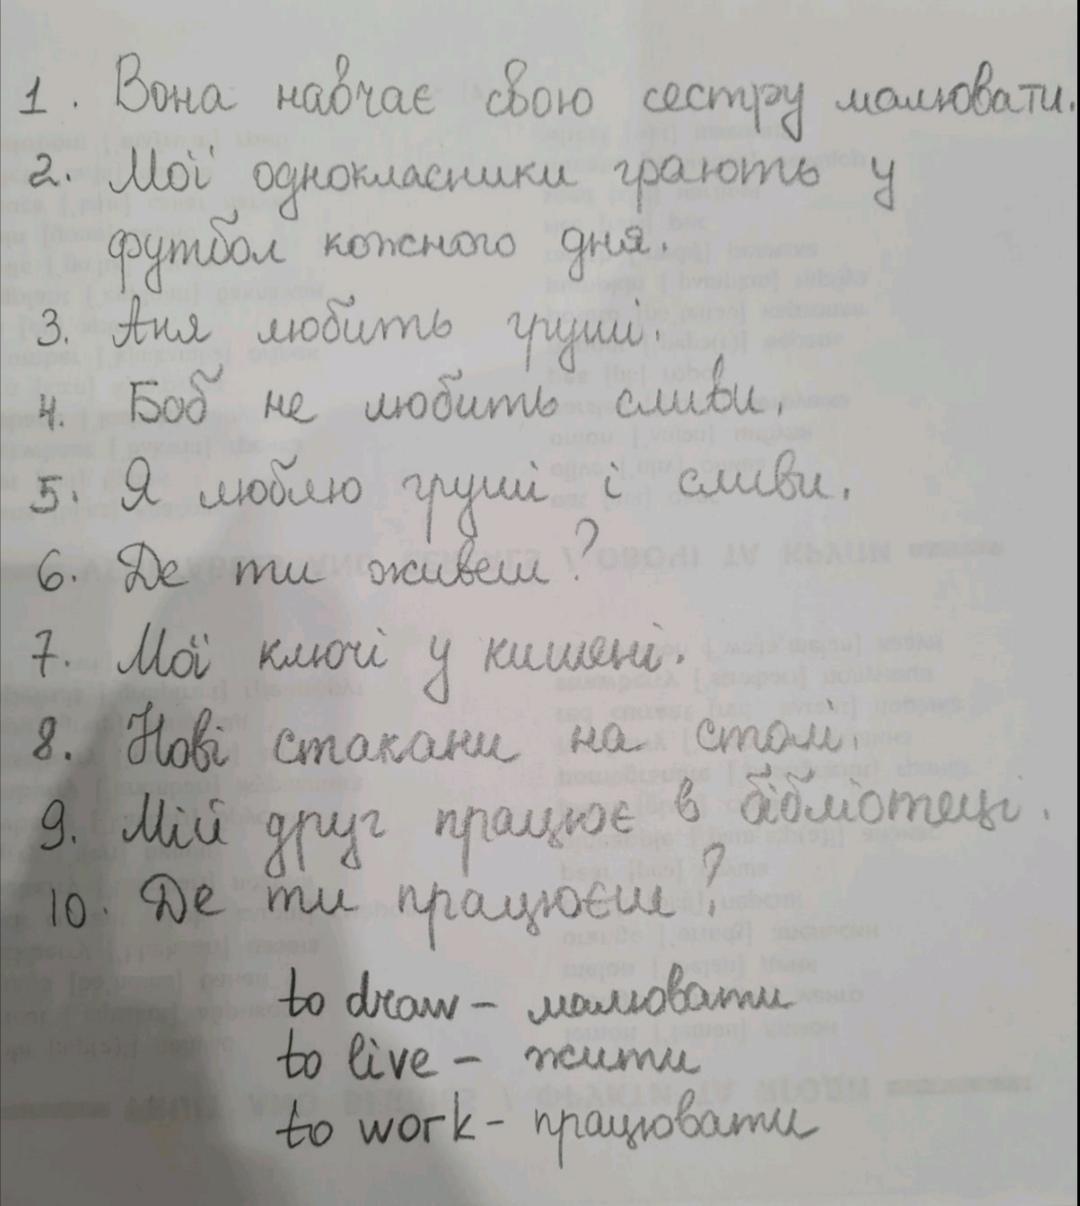 1. Вона навчає свою сестру малювати.
2. Мої однокласники грають у
футбол кожного дня.
3. Аня любить груші.
4. Боб не любить сливи.
5. Я люблю груші і сливи.
6. Де ти живеш?
7. Мої ключі у кишені.
8. Нові стакани на столі.
9. Мій друг працює в бібліотеці.
10. Де ти працюєш?
to draw – малювати
to live – жити
to work – працювати